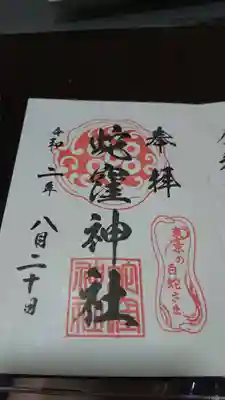 奉拝
蛇窪神社
令和二年
八月二十日
東京の白蛇さま